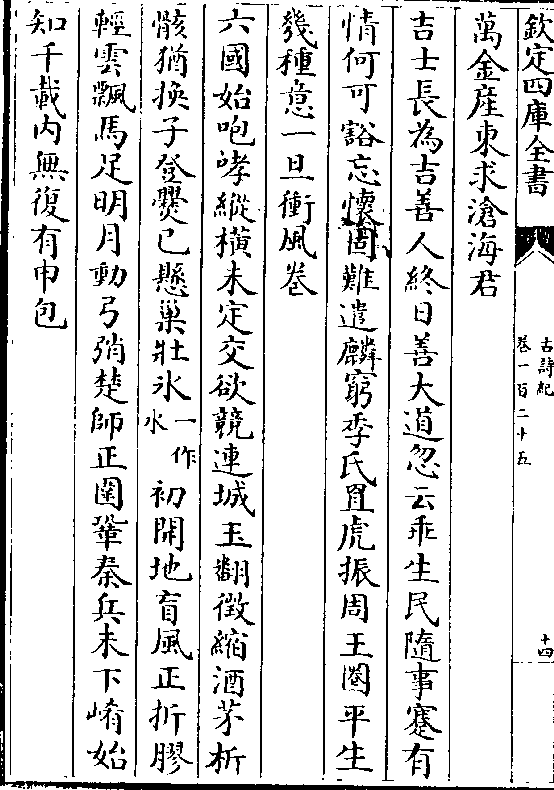 欽定四庫全書
古詩紀
卷一百二十五
十四
萬金産東求滄海君
吉士長為吉善人終日善大道忽云乖生民隨事蹇有
情何可豁忘懷固難遣麟窮季氏罝虎振周王圈平生
幾種意一旦衝風卷
六國始咆哮縱横未定交欲競連城玉翻徵縮酒茅析
骸猶換子登爨已懸巢壯氷一作水初開地盲風正折膠
輕雲飄馬足明月動弓弰楚師正圍鞏秦兵未下崤始
知千載内無復有申包